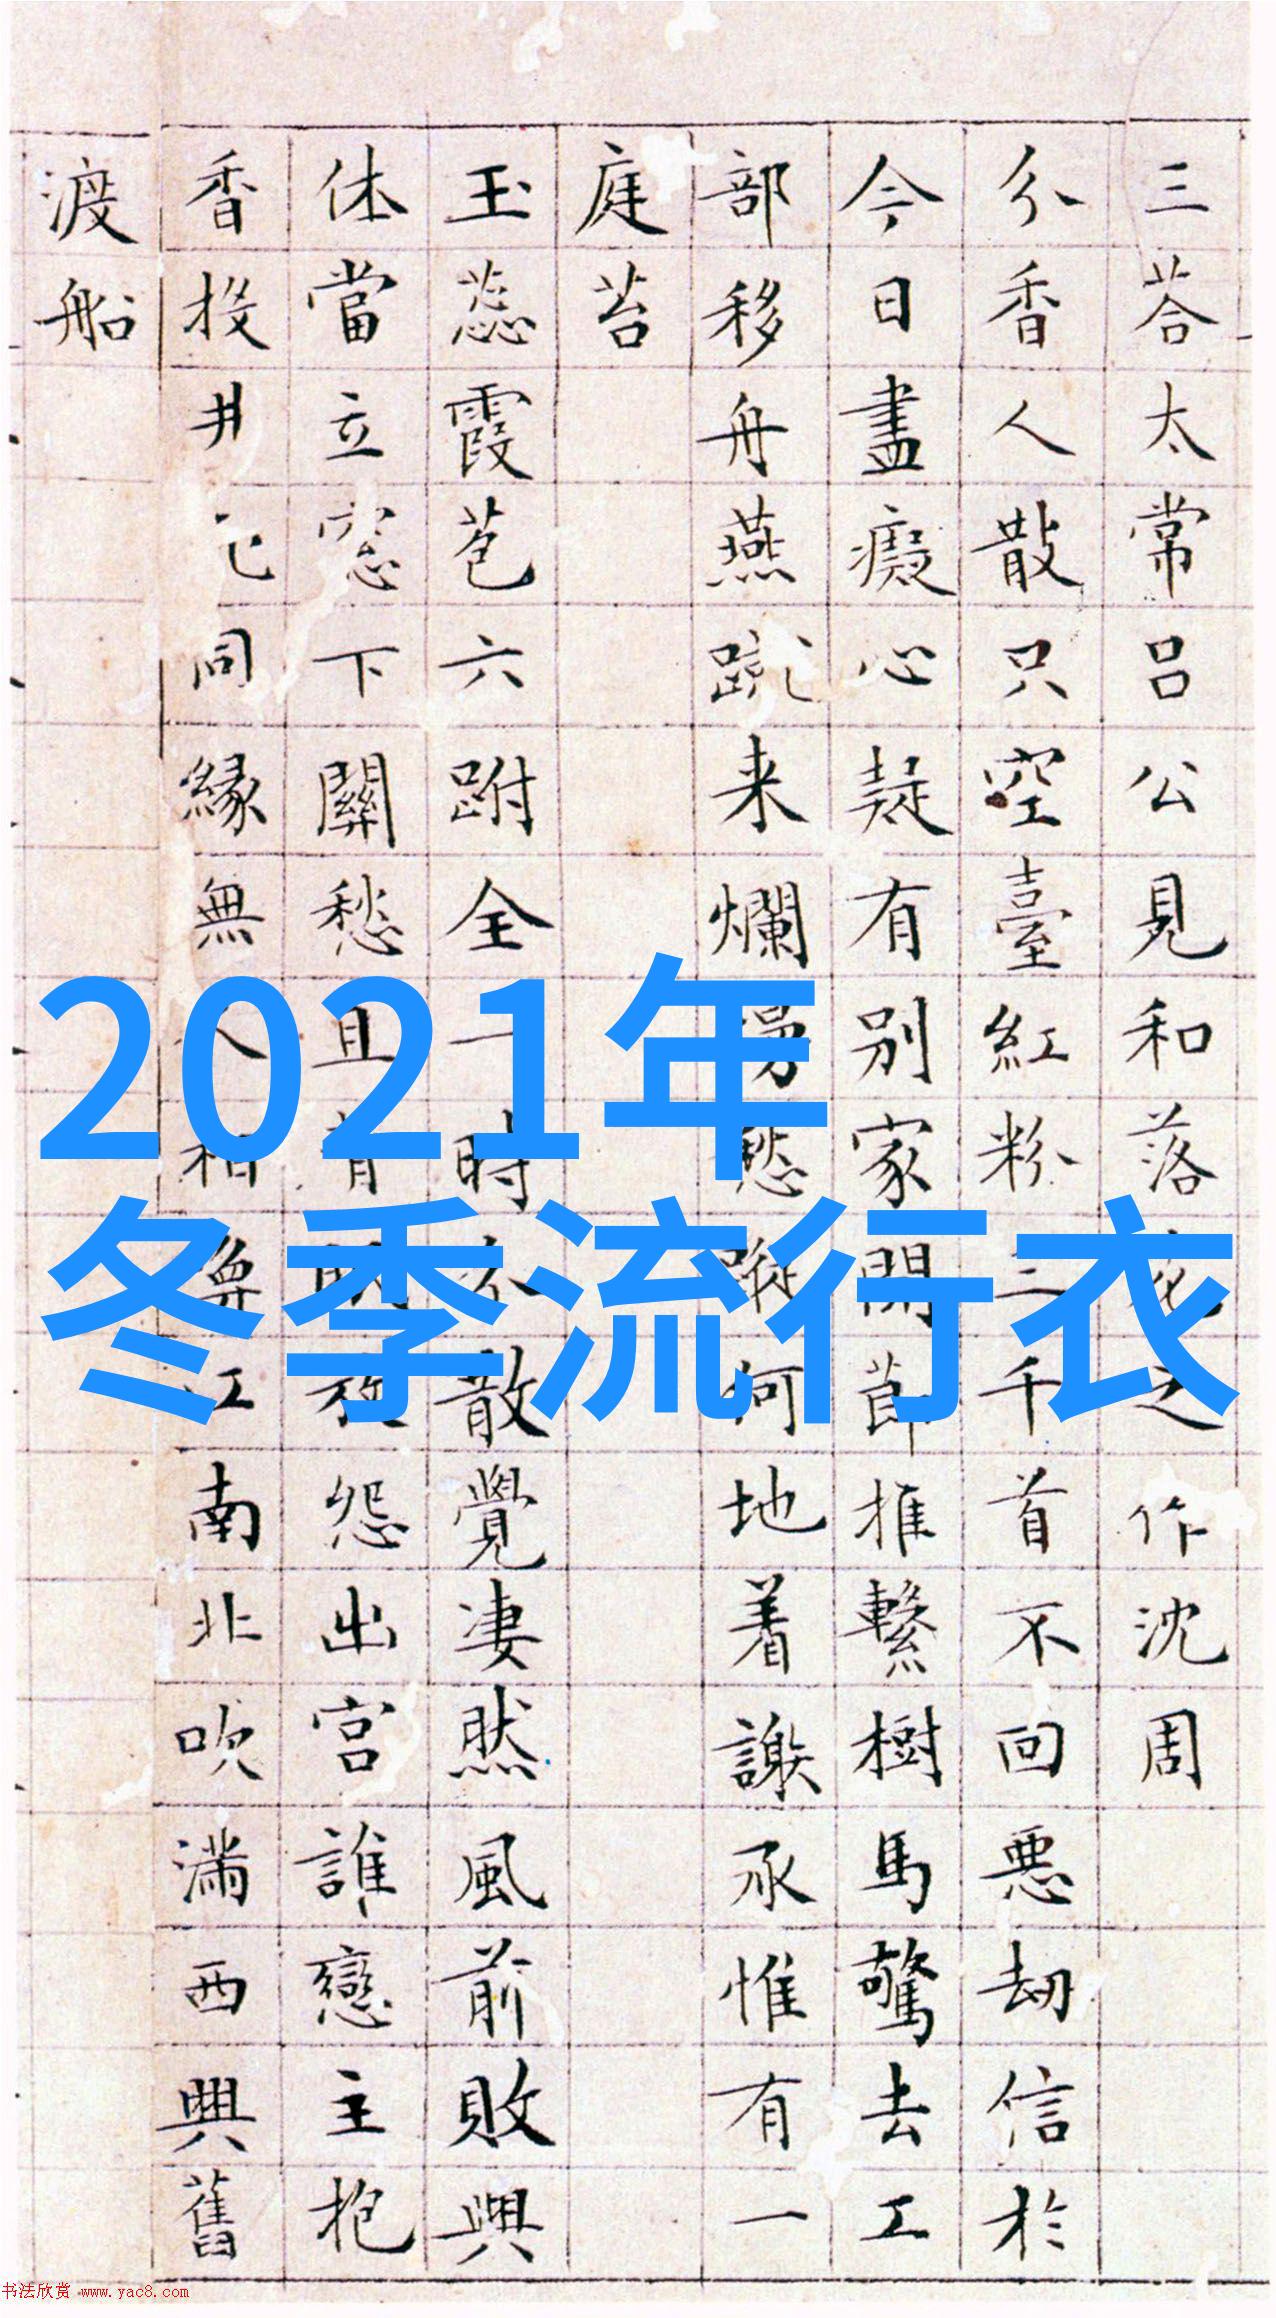 三荅太常吕公見和落花之作沈周
㣎香人散只空臺紅粉三千首不回惡劫信於
今日盡癡心疑有别家開節推繫樹馬驚去工
部移舟燕蹴来爛愁蹤何地着謝承惟有一
庭苔
玉蕊霞苞六跗全一時散覺凄然風前敗興
休當立窓下關愁且怨出宫誰戀主抱
香投井同緣無人和江南北吹滿西興舊
渡船
2021年
冬季流行衣
书法欣赏 www.yac8.com